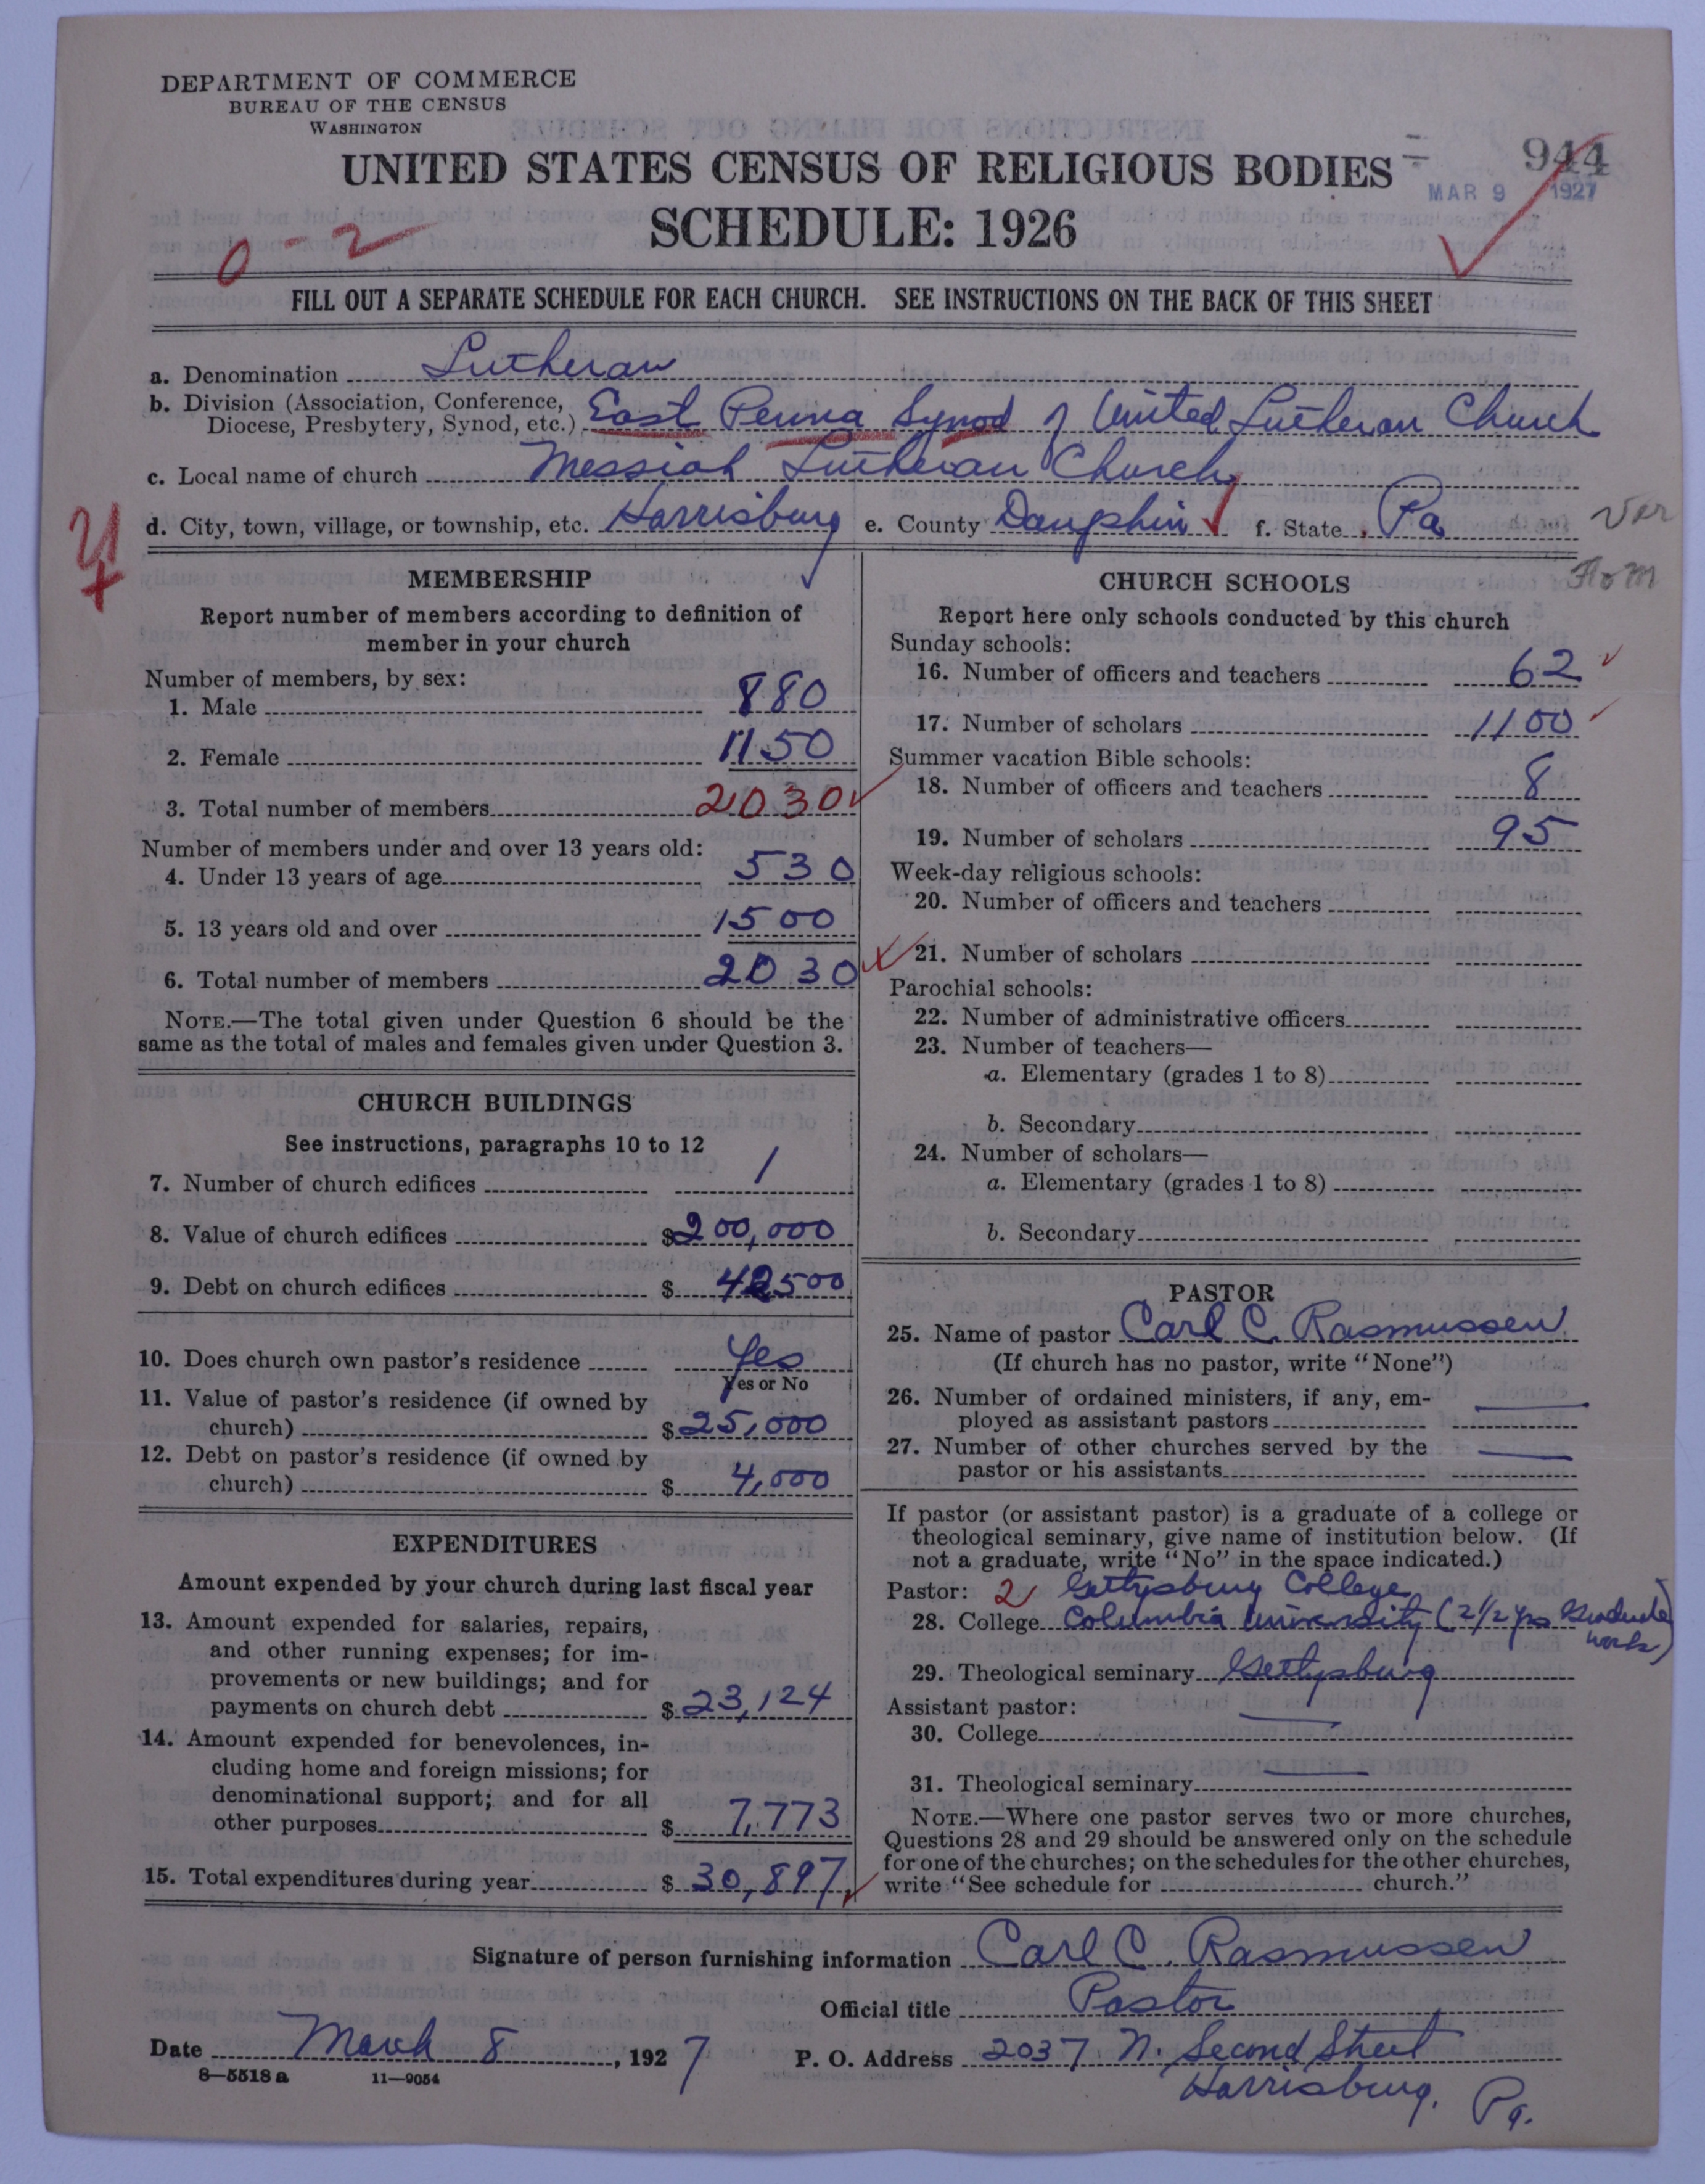 DEPARTMENT OF COMMERCE
BUREAU OF THE CENSUS
WASHINGTON
UNITED STATES CENSUS OF RELIGIOUS BODIES
944
MAR 9 1927
SCHEDULE: 1926
0-2
FILL OUT A SEPARATE SCHEDULE FOR EACH CHURCH. SEE INSTRUCTIONS ON THE BACK OF THIS SHEET
a. Denomination Lutheran
b. Division (Association, Conference,
Diocese, Presbytery, Synod, etc.) East Penna Synod of United Lutheran Church
c. Local name of church Messiah Lutheran Church
d. City, town, village, or township, etc. Harrisburg e. County Dauphin f. State Pa
Ver
MEMBERSHIP
Report number of members according to definition of
member in your church
Number of members, by sex:
1. Male 880
2. Female 1150
3. Total number of members 2030
Number of members under and over 13 years old:
4. Under 13 years of age 530
5. 13 years old and over 1500
6. Total number of members 2030
NOTE.—The total given under Question 6 should be the
same as the total of males and females given under Question 3.
CHURCH BUILDINGS
See instructions, paragraphs 10 to 12
7. Number of church edifices 1
8. Value of church edifices $200,000
9. Debt on church edifices $42500
10. Does church own pastor's residence Yes
Yes or No
11. Value of pastor's residence (if owned by
church) $25,000
12. Debt on pastor's residence (if owned by
church) $4,000
EXPENDITURES
Amount expended by your church during last fiscal year
13. Amount expended for salaries, repairs,
and other running expenses; for im-
provements or new buildings; and for
payments on church debt $23,124
14. Amount expended for benevolences, in-
cluding home and foreign missions; for
denominational support; and for all
other purposes $7,773
15. Total expenditures during year $30,897
CHURCH SCHOOLS
Report here only schools conducted by this church
Sunday schools:
16. Number of officers and teachers 62
17. Number of scholars 1100
Summer vacation Bible schools:
18. Number of officers and teachers 8
19. Number of scholars 95
Week-day religious schools:
20. Number of officers and teachers
21. Number of scholars
Parochial schools:
22. Number of administrative officers
23. Number of teachers—
a. Elementary (grades 1 to 8)
b. Secondary
24. Number of scholars—
a. Elementary (grades 1 to 8)
b. Secondary
PASTOR
25. Name of pastor Carl C. Rasmussen
(If church has no pastor, write "None")
26. Number of ordained ministers, if any, em-
ployed as assistant pastors
27. Number of other churches served by the
pastor or his assistants
If pastor (or assistant pastor) is a graduate of a college or
theological seminary, give name of institution below. (If
not a graduate, write "No" in the space indicated.)
Pastor: 2 Gettysburg College
28. College Columbia University (2 1/2 yrs Graduate
work)
29. Theological seminary Gettysburg
Assistant pastor:
30. College
31. Theological seminary
NOTE.—Where one pastor serves two or more churches,
Questions 28 and 29 should be answered only on the schedule
for one of the churches; on the schedules for the other churches,
write "See schedule for church."
Signature of person furnishing information Carl C. Rasmussen
Official title Pastor
Date March 8, 1927
P. O. Address 2037 N. Second Street
Harrisburg, Pa.
8—5518 a 11—9054